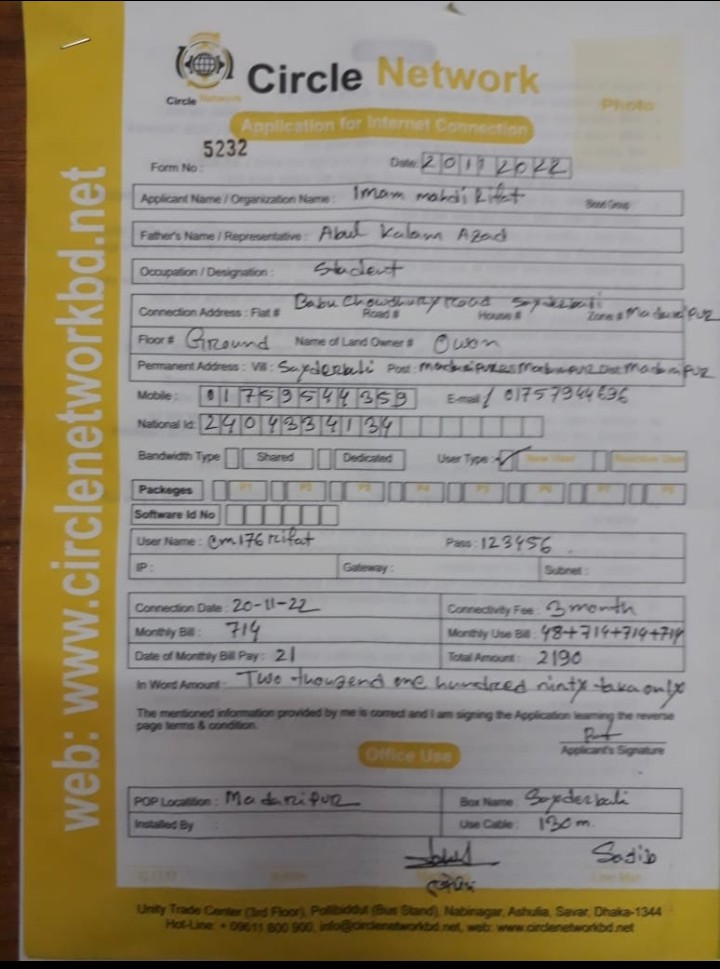 Circle Network
Circle Network
Photo
Application for Internet Connection
5232
Form No :
Date: 20112022
Applicant Name / Organization Name : Imam mahdi Rifat Blood Group
Father's Name / Representative : Abul Kalam Azad
Occupation / Designation : Student
Connection Address : Flat # Babu Chowdhury Road Road # House # Zone # Madaripur
Floor # Ground Name of Land Owner # Owon
Permanent Address : Vill : Sayderbali Post : Dist: Madaripur
Mobile : 01759544359 E-mail / 01757944696
National Id: 2404334134
Bandwidth Type Shared Dedicated User Type : New User
Packeges P1 P2 P3 P4 P5 P6 P7 P8
Software Id No
User Name : cm176rifat Pass : 123456
IP : Gateway : Subnet :
Connection Date : 20-11-22 Connectivity Fee : 3 month
Monthly Bill : 714 Monthly Use Bill : 48+714+714+714
Date of Monthly Bill Pay : 21 Total Amount : 2190
In Word Amount : Two thougend one hundred ninty taka only
The mentioned information provided by me is correct and I am signing the Application learning the reverse
page terms & condition.
Applicant's Signature
Office Use
POP Locatition : Madaripur Box Name : Sayderbali
Installed By : Use Cable : 130 m.
Sadib
Unity Trade Center (3rd Floor), Pollibiddut (Bus Stand), Nabinagar, Ashulia, Savar, Dhaka-1344
Hot-Line: + 09611 800 900, info@circlenetworkbd.net, web: www.circlenetworkbd.net
web: www.circlenetworkbd.net